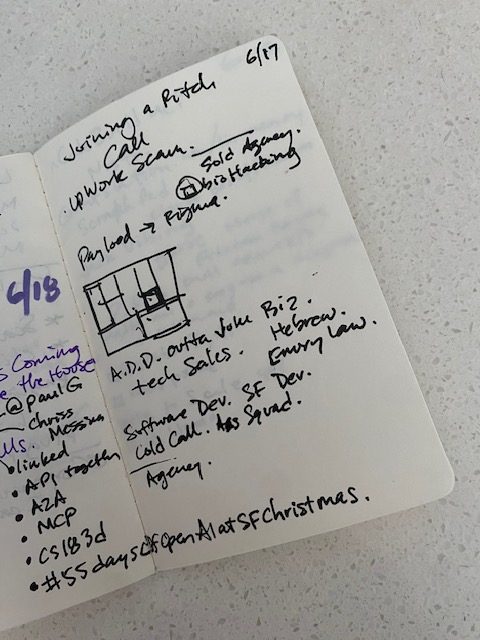 6/17
Joining a Pitch
Call
. UpWork Scam.
Sold Agency.
bioHacking
Payload → Figma.
A.D.D. outta Yoke Biz.
tech Sales. Hebrew.
Emory Law.
Software Dev. SF Dev.
Cold Call. Squad.
Agency.
6/18
Coming
the House
@PaulG
Chriss
Messina
• linked
• API together
• A2A
• MCP
• CS183d
• #55daysofOpenAIatSFChristmas.